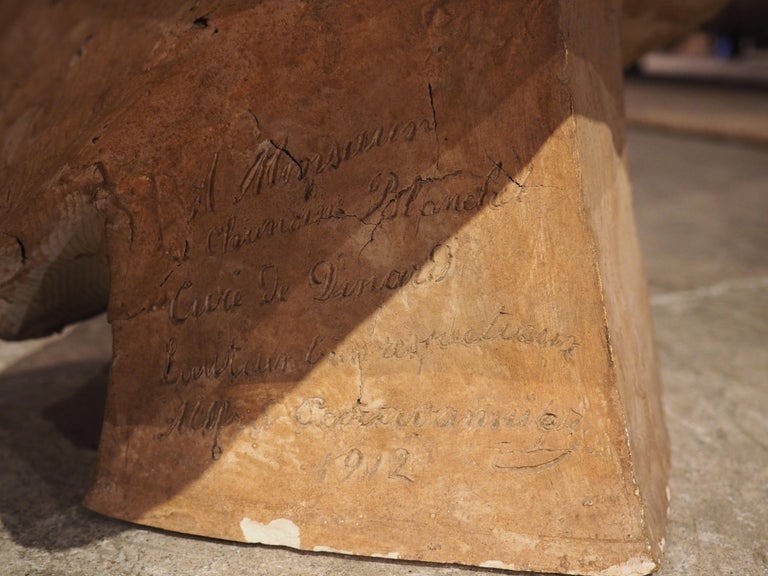 A Monsieur
le Chanoine Blanchet
Curé de Dinard
respectueux
Alfred
1912